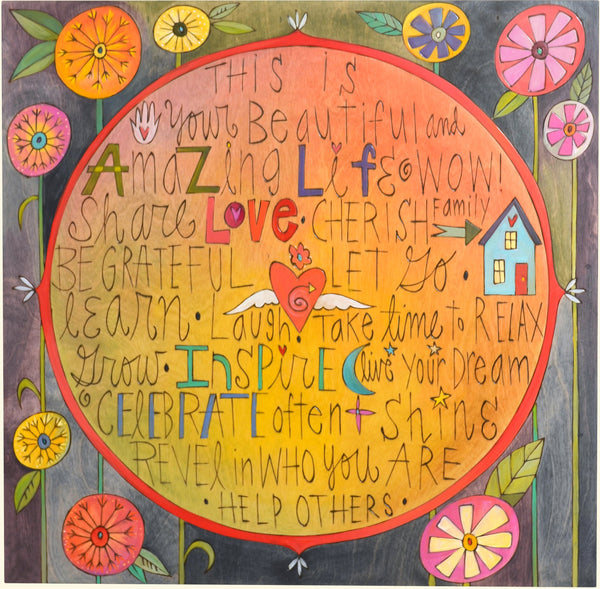 THIS IS
Your BEautiful and
AmaZing LifE WOW!
Share LOVE · CHERISH Family
BE GRATEFUL · LET Go ·
LEARN · Laugh · Take time to RELAX
Grow · InSPiRE live your Dream
CELEBRATE often + ShinE
REVEL in WHO you ARE
· HELP OTHERS ·